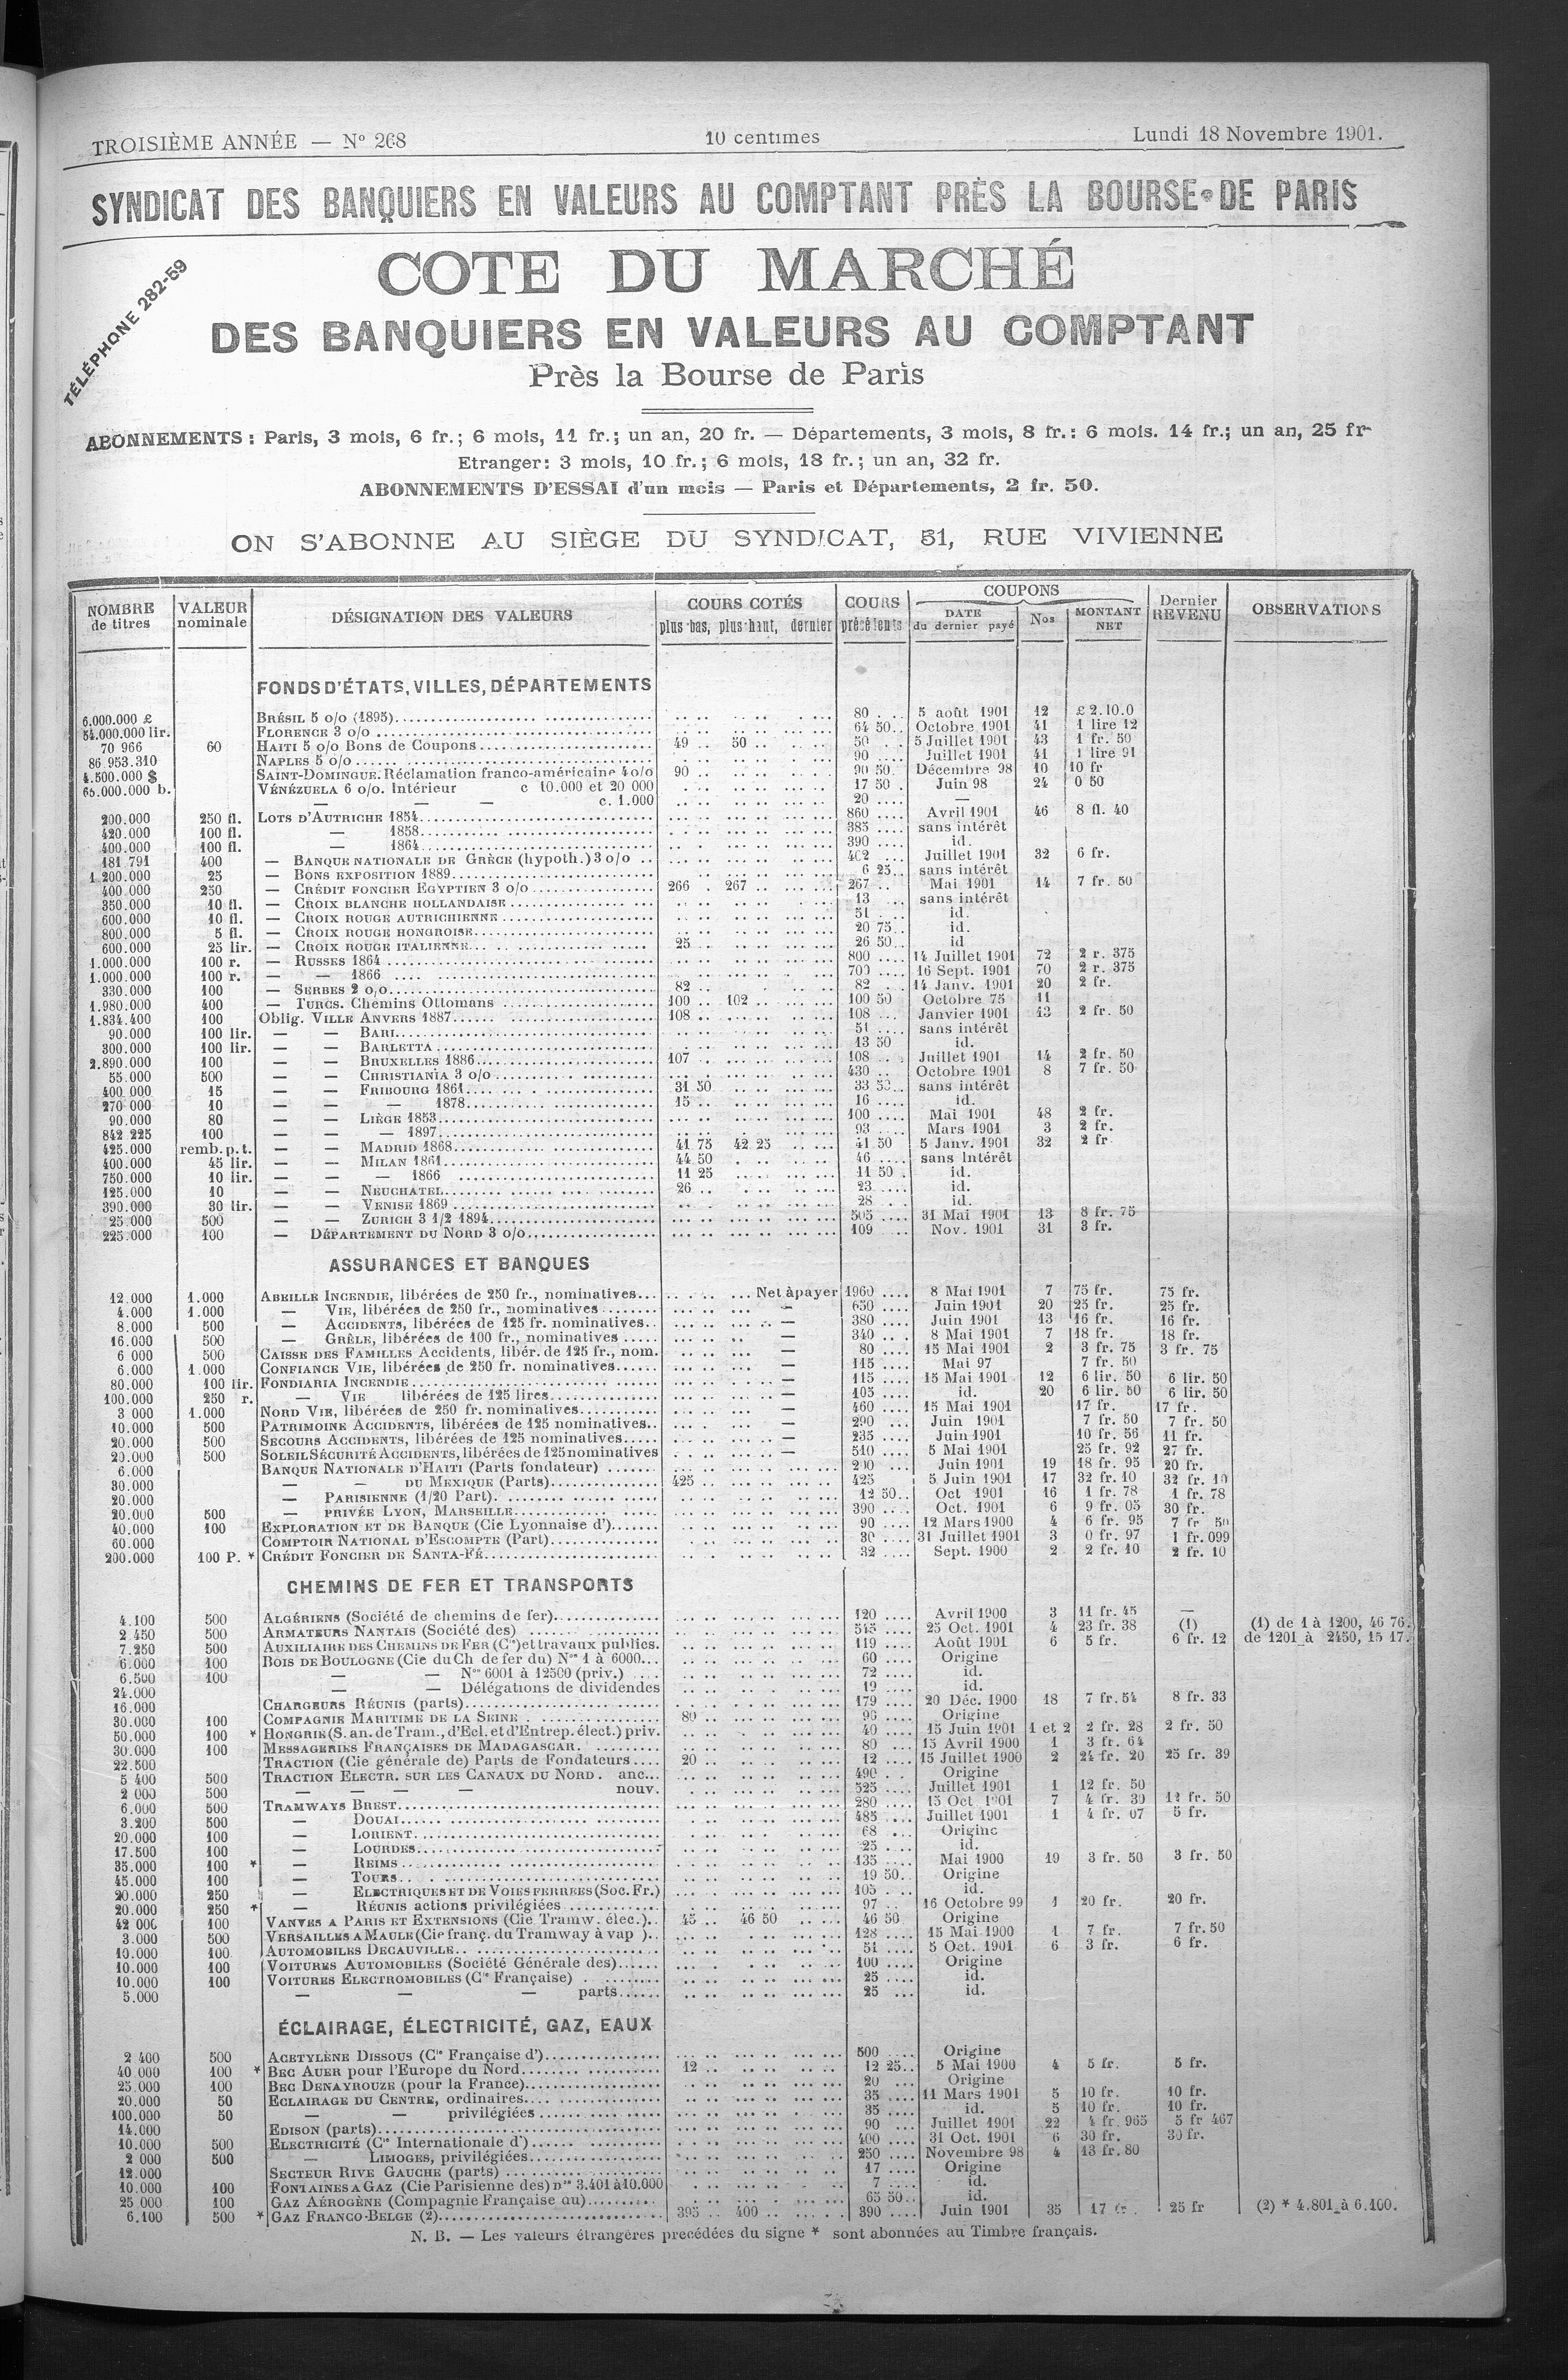 TROISIÈME ANNÉE — No 268
10 centimes
Lundi 18 Novembre 1901.
SYNDICAT DES BANQUIERS EN VALEURS AU COMPTANT PRÈS LA BOURSE DE PARIS
TÉLÉPHONE 282-59
COTE DU MARCHÉ
DES BANQUIERS EN VALEURS AU COMPTANT
Près la Bourse de Paris
ABONNEMENTS : Paris, 3 mois, 6 fr.; 6 mois, 11 fr.; un an, 20 fr. — Départements, 3 mois, 8 fr.: 6 mois. 14 fr.; un an, 25 fr
Etranger: 3 mois, 10 fr.; 6 mois, 18 fr.; un an, 32 fr.
ABONNEMENTS D'ESSAI d'un mois — Paris et Départements, 2 fr. 50.
ON S'ABONNE AU SIÈGE DU SYNDICAT, 51, RUE VIVIENNE
NOMBRE de titres | VALEUR nominale | DÉSIGNATION DES VALEURS | COURS COTÉS plus bas, plus haut, dernier | COURS précédents | COUPONS DATE du dernier payé | Nos | MONTANT NET | Dernier REVENU | OBSERVATIONS
FONDS D'ÉTATS, VILLES, DÉPARTEMENTS
6.000.000 £ BRÉSIL 5 o/o (1895) 80 5 août 1901 12 £ 2.10.0
54.000.000 lir. FLORENCE 3 o/o 64 50 Octobre 1901 41 1 lire 12
70 966 60 HAITI 5 o/o Bons de Coupons 49 50 50 5 Juillet 1901 43 1 fr. 50
86 953.310 NAPLES 5 o/o 90 Juillet 1901 41 1 lire 91
4.500.000 $ SAINT-DOMINGUE. Réclamation franco-américaine 4 o/o 90 90 50 Décembre 98 10 10 fr
65.000.000 b. VÉNÉZUELA 6 o/o. Intérieur c 10.000 et 20 000 17 50 Juin 98 24 0 50
— — — c. 1.000 20 —
200.000 250 fl. LOTS D'AUTRICHE 1854 860 Avril 1901 46 8 fl. 40
420.000 100 fl. — 1858 385 sans intérêt
400.000 100 fl. — 1864 390 id.
181 791 400 — BANQUE NATIONALE DE GRÈCE (hypoth.) 3 o/o 402 Juillet 1901 32 6 fr.
1.200.000 25 — BONS EXPOSITION 1889 6 25 sans intérêt
400 000 250 — CRÉDIT FONCIER EGYPTIEN 3 o/o 266 267 267 Mai 1901 14 7 fr. 50
350.000 10 fl. — CROIX BLANCHE HOLLANDAISE 13 sans intérêt
600.000 10 fl. — CROIX ROUGE AUTRICHIENNE 51 id.
800.000 5 fl. — CROIX ROUGE HONGROISE 20 75 id.
600.000 25 lir. — CROIX ROUGE ITALIENNE 25 26 50 id
1.000.000 100 r. — RUSSES 1864 800 14 Juillet 1901 72 2 r. 375
1.000.000 100 r. — — 1866 700 16 Sept. 1901 70 2 r. 375
330.000 100 — SERBES 2 o/o 82 82 14 Janv. 1901 20 2 fr.
1.980.000 400 — TURCS. Chemins Ottomans 100 102 100 50 Octobre 75 11
1.834.400 100 Oblig. VILLE ANVERS 1887 108 108 Janvier 1901 13 2 fr. 50
90.000 100 lir. — — BARI 51 sans intérêt
300.000 100 lir. — — BARLETTA 13 50 id.
2.890.000 100 — — BRUXELLES 1886 107 108 Juillet 1901 14 2 fr. 50
55.000 500 — — CHRISTIANIA 3 o/o 430 Octobre 1901 8 7 fr. 50
400 000 15 — — FRIBOURG 1861 31 50 33 50 sans intérêt
270 000 10 — — — 1878 15 16 id.
90.000 80 — — LIÈGE 1853 100 Mai 1901 48 2 fr.
842 225 100 — — — 1897 93 Mars 1901 3 2 fr.
425.000 remb. p. t. — — MADRID 1868 41 75 42 25 41 50 5 Janv. 1901 32 2 fr
400.000 45 lir. — — MILAN 1861 44 50 46 sans intérêt
750.000 10 lir. — — — 1866 11 25 11 50 id.
125.000 10 — — NEUCHATEL 26 23 id.
390.000 30 lir. — — VENISE 1869 28 id.
25 000 500 — — ZURICH 3 1/2 1894 505 31 Mai 1901 13 8 fr. 75
225.000 100 — DÉPARTEMENT DU NORD 3 o/o 109 Nov. 1901 31 3 fr.
ASSURANCES ET BANQUES
12.000 1.000 ABEILLE INCENDIE, libérées de 250 fr., nominatives Net à payer 1960 8 Mai 1901 7 75 fr. 75 fr.
4.000 1.000 — VIE, libérées de 250 fr., nominatives — 650 Juin 1901 20 25 fr. 25 fr.
8.000 500 — ACCIDENTS, libérées de 125 fr. nominatives — 380 Juin 1901 13 16 fr. 16 fr.
16.000 500 — GRÊLE, libérées de 100 fr., nominatives — 340 8 Mai 1901 7 18 fr. 18 fr.
6 000 500 CAISSE DES FAMILLES Accidents, libér. de 125 fr., nom. — 80 15 Mai 1901 2 3 fr. 75 3 fr. 75
6.000 1.000 CONFIANCE VIE, libérées de 250 fr. nominatives — 115 Mai 97 7 fr. 50
80.000 100 lir. FONDIARIA INCENDIE — 115 15 Mai 1901 12 6 lir. 50 6 lir. 50
100.000 250 r. — VIE libérées de 125 lires — 105 id. 20 6 lir. 50 6 lir. 50
3 000 1.000 NORD VIE, libérées de 250 fr. nominatives — 460 15 Mai 1901 17 fr. 17 fr.
10.000 500 PATRIMOINE ACCIDENTS, libérées de 125 nominatives — 290 Juin 1901 7 fr. 50 7 fr. 50
20.000 500 SECOURS ACCIDENTS, libérées de 125 nominatives — 235 Juin 1901 10 fr. 56 11 fr.
20.000 500 SOLEIL SÉCURITÉ ACCIDENTS, libérées de 125 nominatives — 510 5 Mai 1901 25 fr. 92 27 fr.
6.000 BANQUE NATIONALE D'HAITI (Parts fondateur) 200 Juin 1901 19 18 fr. 95 20 fr.
30.000 — — DU MEXIQUE (Parts) 425 425 5 Juin 1901 17 32 fr. 10 32 fr. 10
20.000 — PARISIENNE (1/20 Part) 12 50 Oct 1901 16 1 fr. 78 1 fr. 78
20.000 500 — PRIVÉE LYON, MARSEILLE 390 Oct. 1901 6 9 fr. 05 30 fr.
40.000 100 EXPLORATION ET DE BANQUE (Cie Lyonnaise d') 90 12 Mars 1900 4 6 fr. 95 7 fr 50
60.000 COMPTOIR NATIONAL D'ESCOMPTE (Part) 30 31 Juillet 1901 3 0 fr. 97 1 fr. 099
200.000 100 P. * CRÉDIT FONCIER DE SANTA-FÉ 32 Sept. 1900 2 2 fr. 10 2 fr. 10
CHEMINS DE FER ET TRANSPORTS
4.100 500 ALGÉRIENS (Société de chemins de fer) 120 Avril 1900 3 11 fr. 45 —
2 450 500 ARMATEURS NANTAIS (Société des) 545 25 Oct. 1901 4 23 fr. 38 (1) (1) de 1 à 1200, 46 76.
7.250 500 AUXILIAIRE DES CHEMINS DE FER (Cie) et travaux publics. 119 Août 1901 6 5 fr. 6 fr. 12 de 1201 à 2450, 15 17.
6.000 100 BOIS DE BOULOGNE (Cie du Ch de fer du) Nos 1 à 6000 60 Origine
6.500 100 — — Nos 6001 à 12500 (priv.) 72 id.
24.000 — — Délégations de dividendes 19 id.
16.000 CHARGEURS RÉUNIS (parts) 179 20 Déc. 1900 18 7 fr. 54 8 fr. 33
30.000 100 COMPAGNIE MARITIME DE LA SEINE 80 Origine
50.000 100 * HONGRIE (S. an. de Tram., d'Ecl. et d'Entrep. élect.) priv. 40 15 Juin 1901 1 et 2 2 fr. 28 2 fr. 50
30.000 100 MESSAGERIES FRANÇAISES DE MADAGASCAR 80 15 Avril 1900 1 3 fr. 64
22.500 TRACTION (Cie générale de) Parts de Fondateurs 20 12 15 Juillet 1900 2 24 fr. 20 25 fr. 39
5 400 500 TRACTION ELECTR. SUR LES CANAUX DU NORD. anc. 490 Origine
2 000 500 — — — — nouv. 525 Juillet 1901 1 12 fr. 50
6.000 500 TRAMWAYS BREST 280 15 Oct 1901 7 4 fr. 39 12 fr. 50
3.200 500 — DOUAI 485 Juillet 1901 1 4 fr. 07 5 fr.
20.000 100 — LORIENT 68 Origine
17.500 100 — LOURDES 25 id.
35.000 100 * — REIMS 135 Mai 1900 19 3 fr. 50 3 fr. 50
45.000 100 — TOURS 19 50 Origine
20.000 250 — ELECTRIQUES ET DE VOIES FERRÉES (Soc. Fr.) 105 id.
20.000 250 * — RÉUNIS actions privilégiées 97 16 Octobre 99 1 20 fr. 20 fr.
42 000 100 VANVES A PARIS ET EXTENSIONS (Cie Tramw. élec.) 45 46 50 46 50 Origine
3.000 500 VERSAILLES A MAULE (Cie franç. du Tramway à vap) 128 15 Mai 1900 1 7 fr. 7 fr. 50
10.000 100 AUTOMOBILES DECAUVILLE 51 5 Oct. 1901 6 3 fr. 6 fr.
10.000 100 VOITURES AUTOMOBILES (Société Générale des) 100 Origine
10.000 100 VOITURES ELECTROMOBILES (Cie Française) 25 id.
5.000 — — — parts 25 id.
ÉCLAIRAGE, ÉLECTRICITÉ, GAZ, EAUX
2 400 500 ACETYLÈNE DISSOUS (Cie Française d') 500 Origine
40 000 100 * BEC AUER pour l'Europe du Nord 12 12 25 5 Mai 1900 4 5 fr. 5 fr.
25.000 100 BEC DENAYROUZE (pour la France) 20 Origine
20.000 50 ECLAIRAGE DU CENTRE, ordinaires 35 11 Mars 1901 5 10 fr. 10 fr.
100.000 50 — — privilégiées 35 id. 5 10 fr. 10 fr.
14.000 EDISON (parts) 90 Juillet 1901 22 4 fr. 965 5 fr 467
10.000 500 ELECTRICITÉ (Cie Internationale d') 400 31 Oct. 1901 6 30 fr. 30 fr.
2 000 500 — LIMOGES, privilégiées 250 Novembre 98 4 13 fr. 80
12.000 SECTEUR RIVE GAUCHE (parts) 17 Origine
10.000 100 FONTAINES A GAZ (Cie Parisienne des) nos 3.401 à 10.000 7 id.
25 000 100 GAZ AÉROGÈNE (Compagnie Française du) 65 50 id.
6.100 500 * GAZ FRANCO-BELGE (2) 395 400 390 Juin 1901 35 17 fr. 25 fr (2) * 4.801 à 6.100.
N. B. — Les valeurs étrangères precédées du signe * sont abonnées au Timbre français.